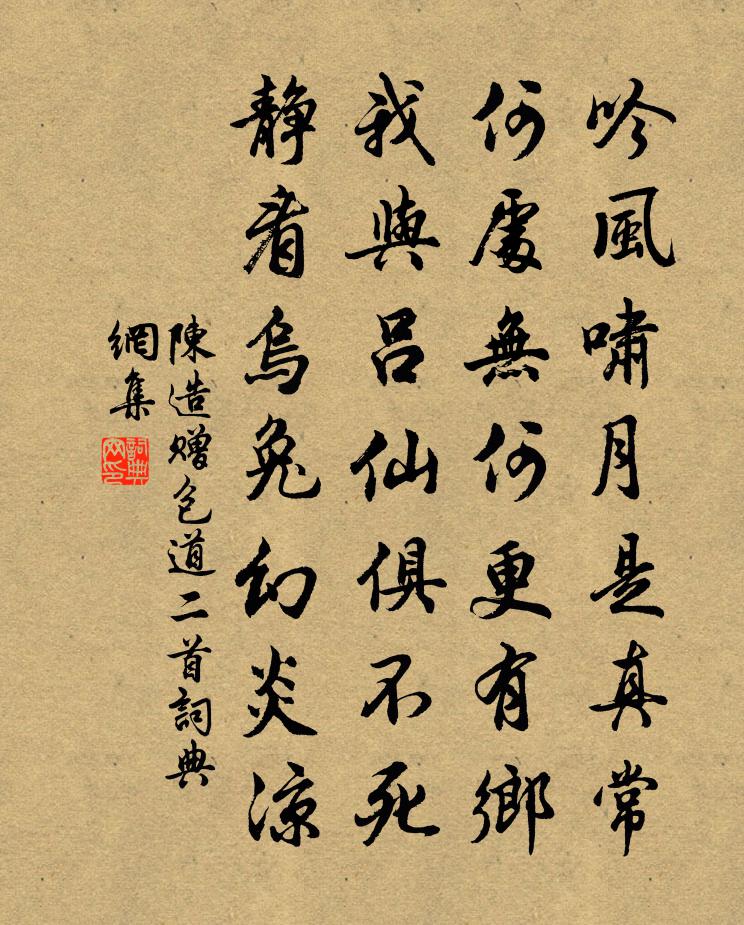 吟風嘯月是真常
何處無何更有鄉
我與呂仙俱不死
静看烏兔幻炎涼
陳造贈包道二首詞典
網集
詞典
网印